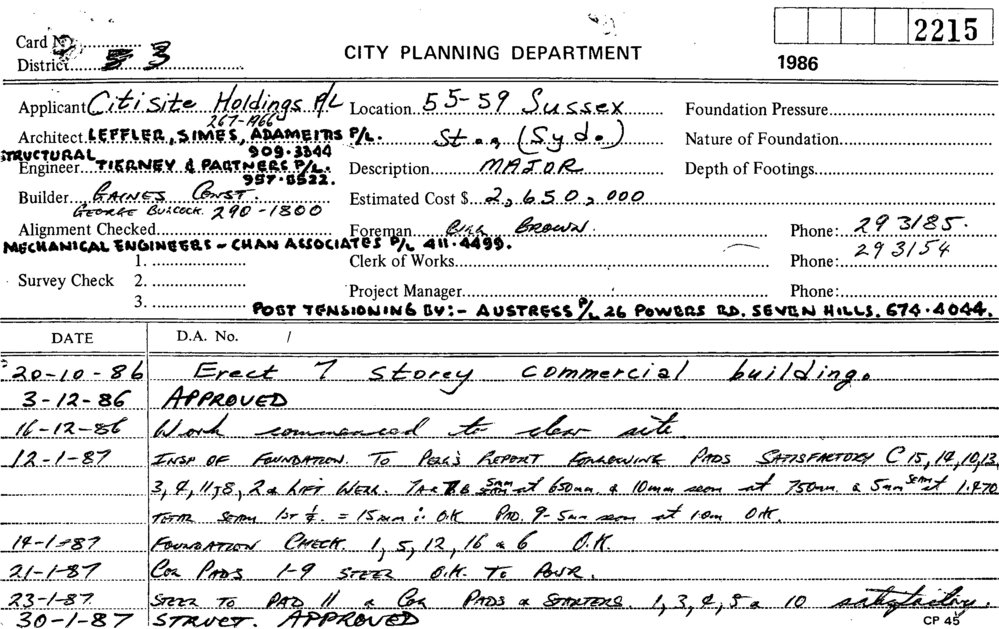 2215
Card No.
CITY PLANNING DEPARTMENT
District 3
1986
Applicant Citisite Holdings P/L Location 55-59 Sussex Foundation Pressure
267-1966
Architect LEFFLER, SIMES, ADAMEITS P/L. St., (Syd.) Nature of Foundation
STRUCTURAL 909.3344
Engineer TIERNEY & PARTNERS P/L. Description MAJOR Depth of Footings
957.8522.
Builder GAINES CONST. Estimated Cost $ 2,650,000
GEORGE BULCOCK 290-1800
Alignment Checked Foreman BILL BROWN. Phone: 293185.
MECHANICAL ENGINEERS - CHAN ASSOCIATES P/L 411.4499.
293154
1. Clerk of Works Phone:
Survey Check 2.
Project Manager Phone:
3.
POST TENSIONING BY:- AUSTRESS P/L 26 POWERS RD. SEVEN HILLS. 674.4044.
DATE D.A. No. /
20-10-86 Erect 7 storey commercial building.
3-12-86 APPROVED
16-12-86 Work commenced to clear site.
12-1-87 INSP OF FOUNDATION. TO REPORT FOLLOWING PADS SATISFACTORY C 15, 14, 10, 13,
3, 4, 11, 8, 2 & LIFT WELL. 5mm seam at 650mm. & 10mm seam at 750mm. & 5mm seam at 1.470
TOTAL SEAM = 15mm O.K PAD. 9-5mm seam at 10m O.K.
14-1-87 FOUNDATION CHECK. 1, 5, 12, 16 & 6 O.K.
21-1-87 COL PADS 1-9 STEEL O.K. TO POUR.
23-1-87 STEEL TO PAD 11 & COL PADS & STARTERS. 1, 3, 4, 5 & 10 satisfactory.
30-1-87 STRUCT. APPROVED
CP 45